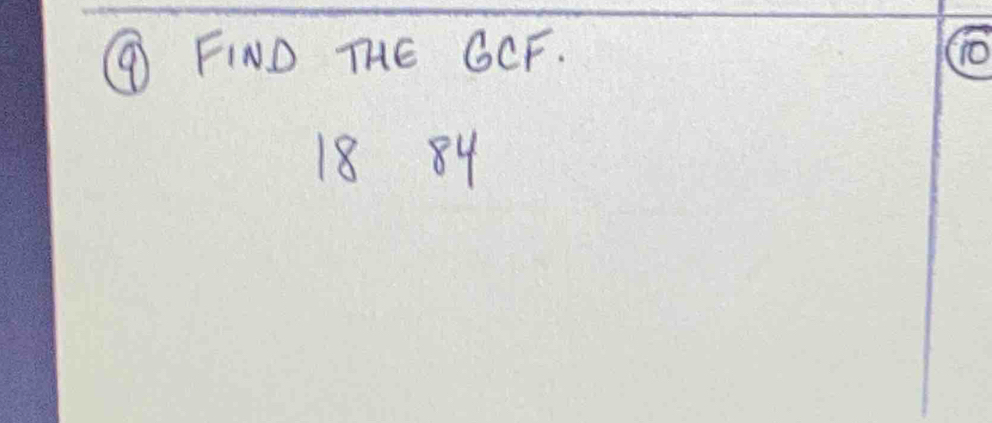 ⑨ FIND THE GCF.
18 84
⑩